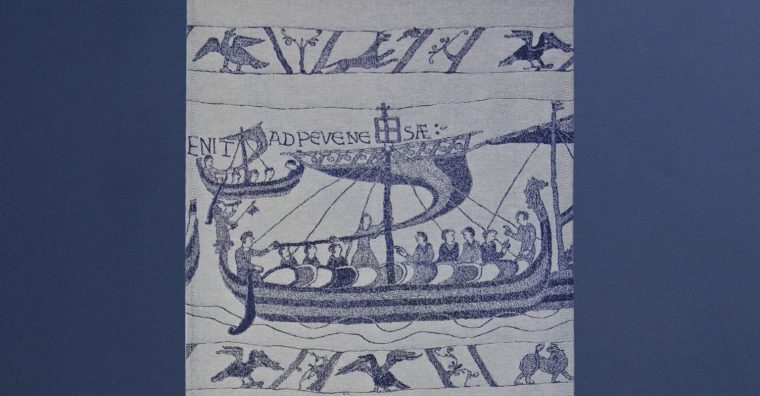 ENIT AD PEVENE SÆ: